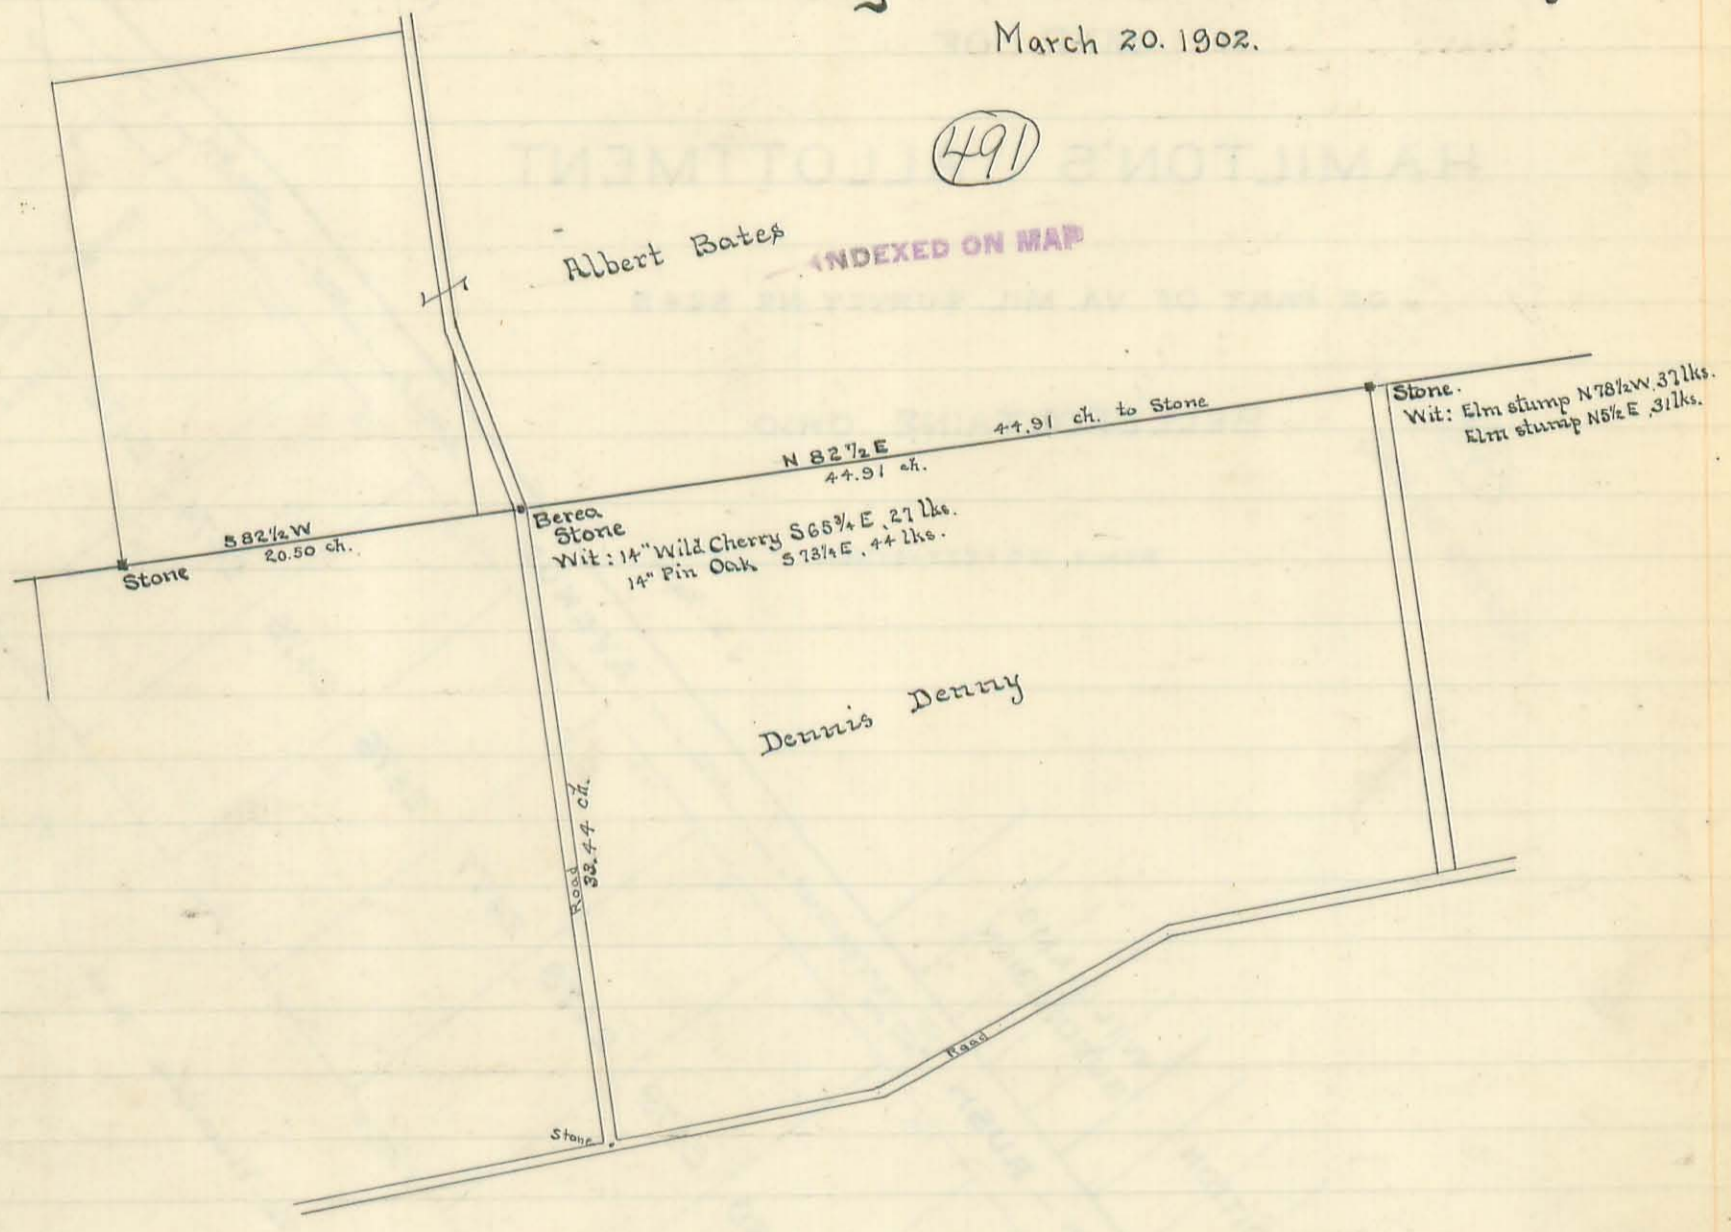 March 20. 1902.
491
Albert Bates
INDEXED ON MAP
Stone.
Wit: Elm stump N 78½ W, 37 lks.
Elm stump N 5½ E, 31 lks.
44.91 ch. to Stone
N 82½ E
44.91 ch.
Berea
Stone
Wit: 14" Wild Cherry S 65¾ E, 27 lks.
14" Pin Oak S 73¼ E, 44 lks.
S 82½ W
20.50 ch.
Stone
Dennis Denny
Road
33.44 ch.
Road
Stone